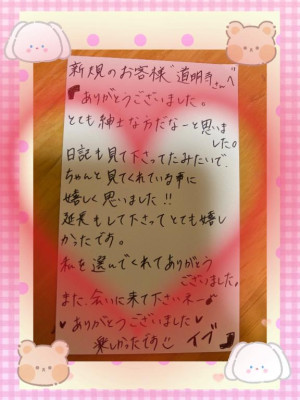 新規のお客様"道明寺さん"へ
ありがとうございました。
とても紳士な方だなーと思いま
した。
日記も見て下さってたみたいで、
ちゃんと見てくれている事に
嬉しく思いました!!
延長もして下さってとても嬉し
かったです。
私を選んでくれてありがとう
ございました。
また、会いに来て下さいネー♪
♥ありがとうございました♥
楽しかったです イブ